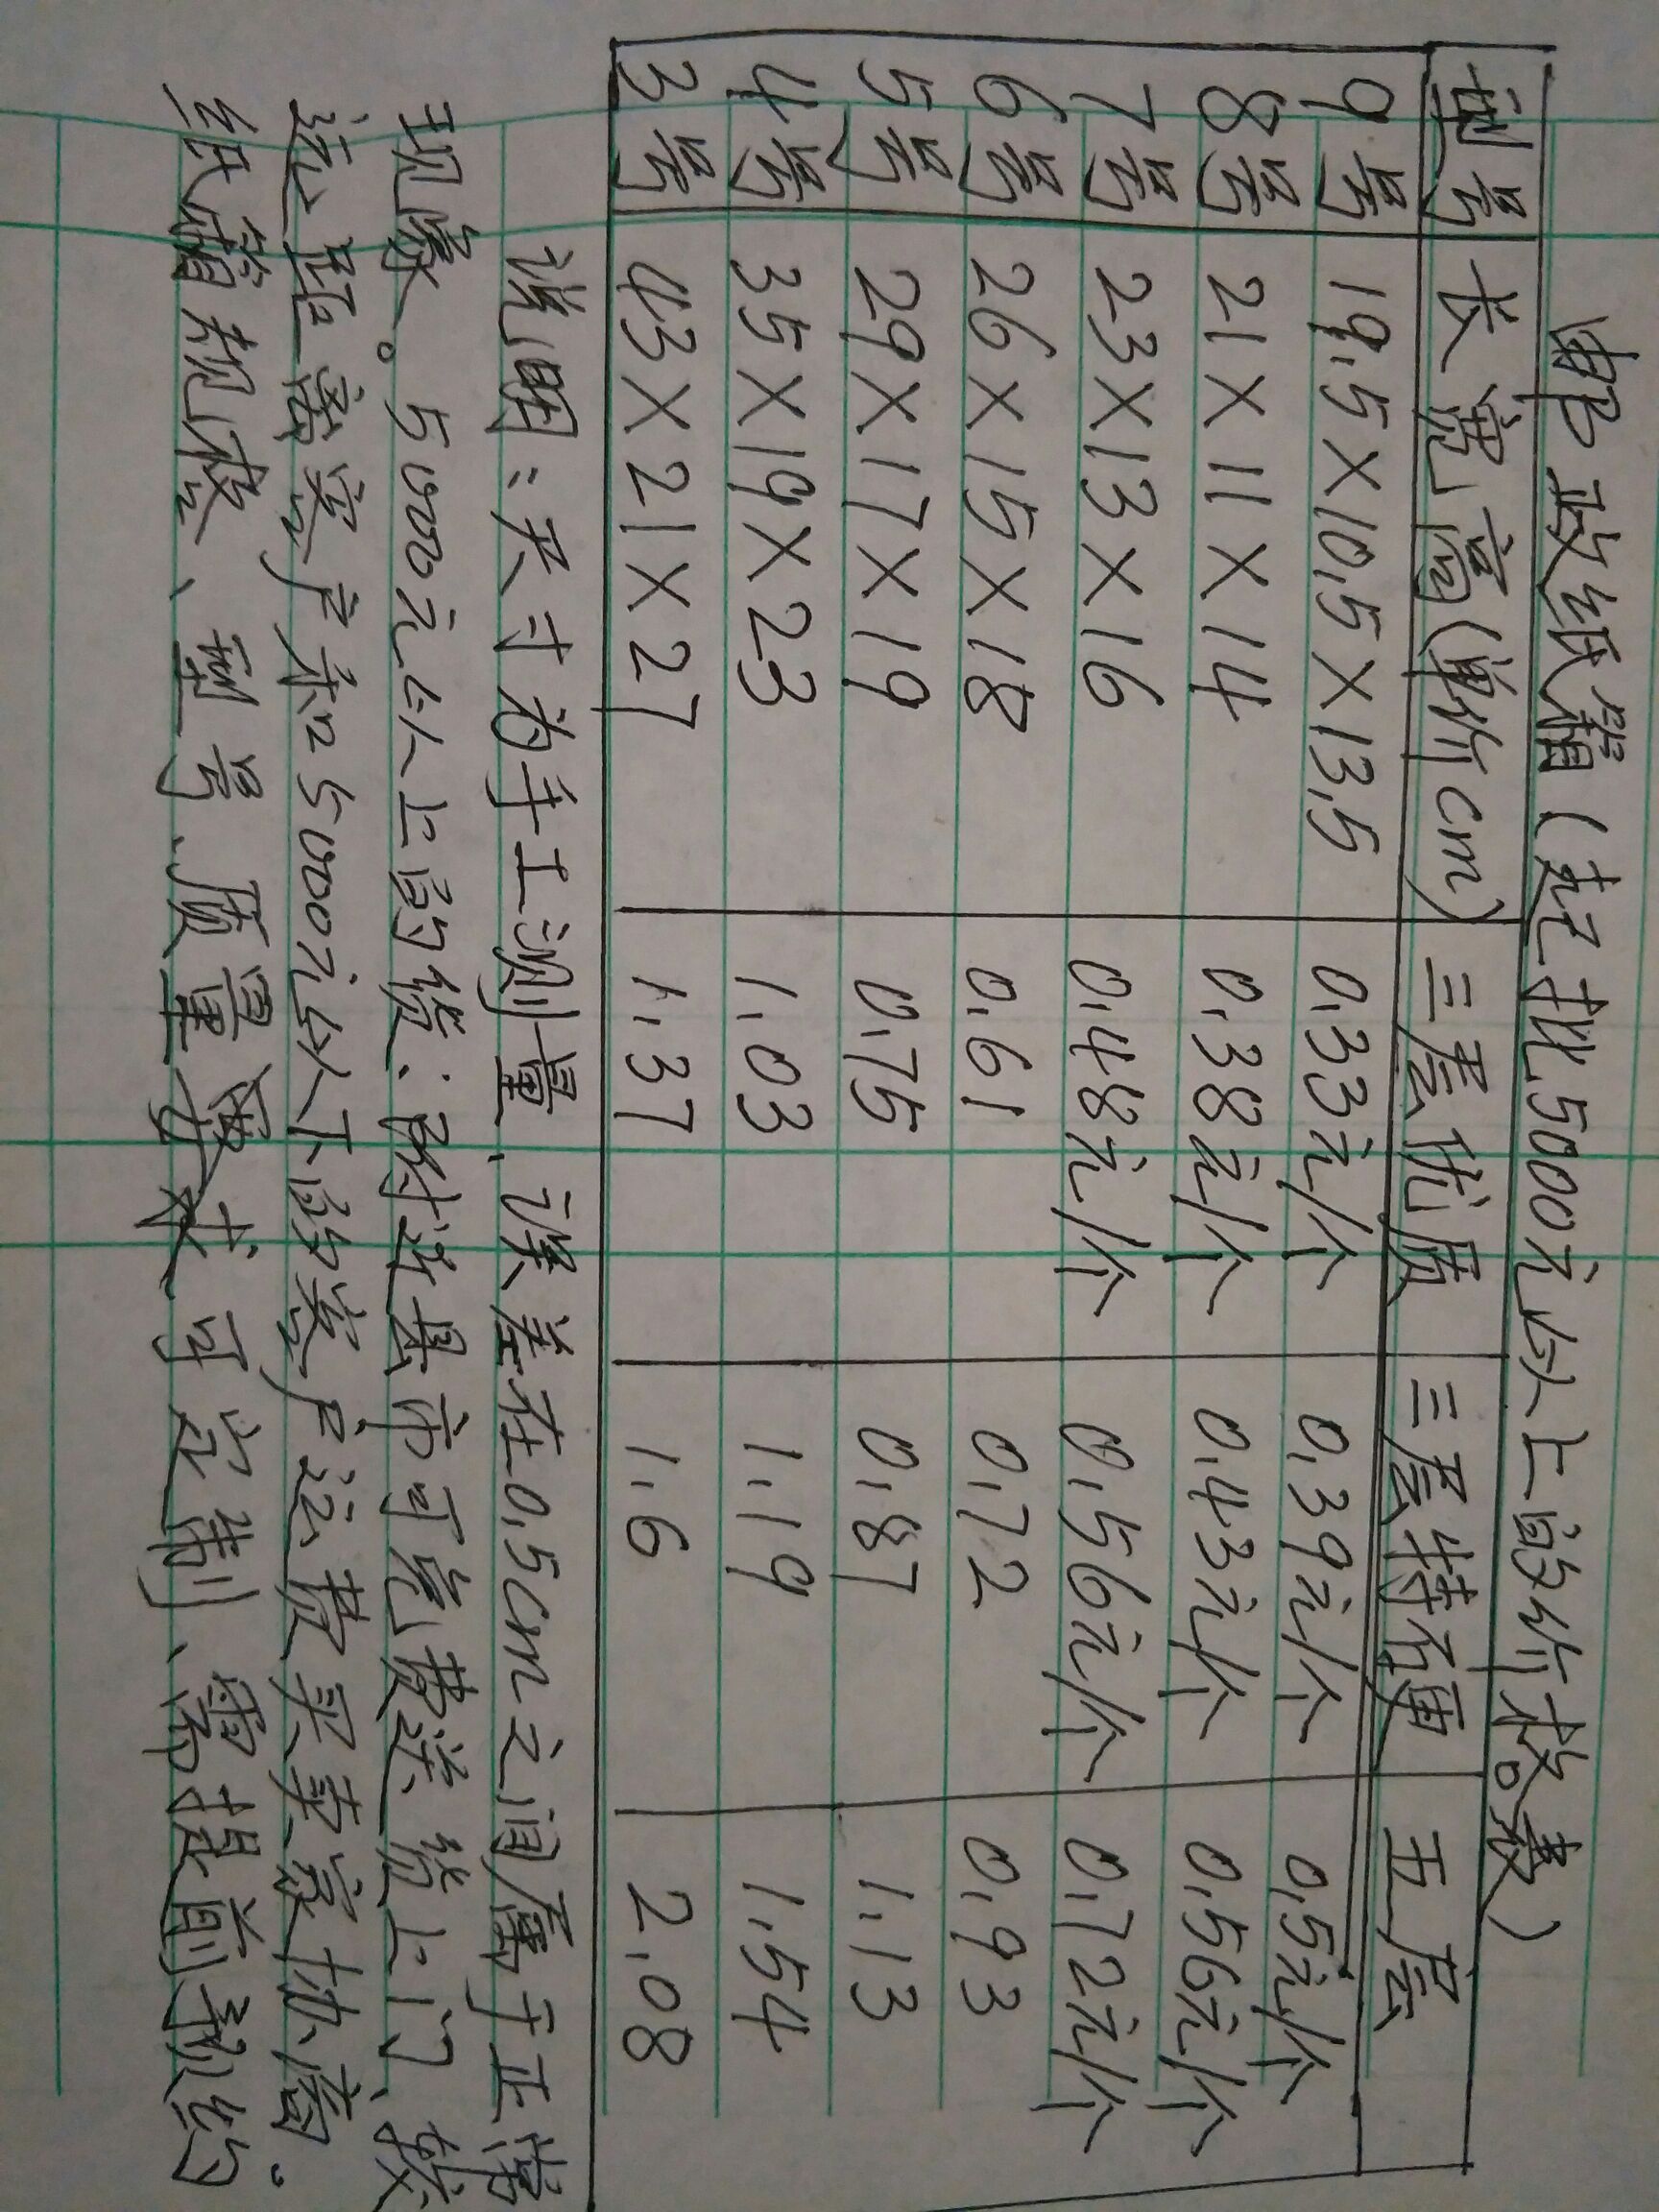 邮政纸箱(起批5000元以上的价格表)
型号 长宽高(单价cm) 三层优质 三层特硬 五层
9号 19.5×10.5×13.5 0.33元/个 0.39元/个 0.5元/个
8号 21×11×14 0.38元/个 0.43元/个 0.56元/个
7号 23×13×16 0.48元/个 0.56元/个 0.72元/个
6号 26×15×18 0.61 0.72 0.93
5号 29×17×19 0.75 0.87 1.13
4号 35×19×23 1.03 1.19 1.54
3号 43×21×27 1.37 1.6 2.08
说明:尺寸为手工测量、误差在0.5cm之间属于正常
现象。5000元以上的货:附近县市可免费送货上门、较
远距离客户和5000元以下的客户运费买卖家协商.
纸箱规模、型号、质量要求可定制、需提前预约。